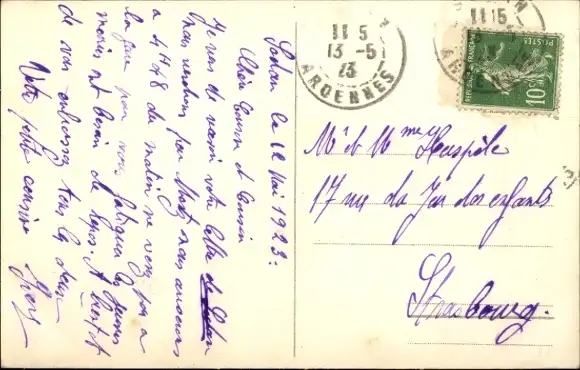 Sedan le 12 Mai 1923:
Chère Cousine et Cousin
Je viens de recevoir votre lettre
nous rentrons par Metz nous arriverons
a 4 H 48 du matin ne venez pas a
la gare pour vous fatiguer les
ont besoin de repos. A bientôt
de vous embrasser tous les deux
Votre petite cousine
11 5
13 -5
23
ARDENNES
11 15
ARD
POSTES
10c
Mr et Mme Haspèle
17 rue du Jeu des enfants
Strasbourg.